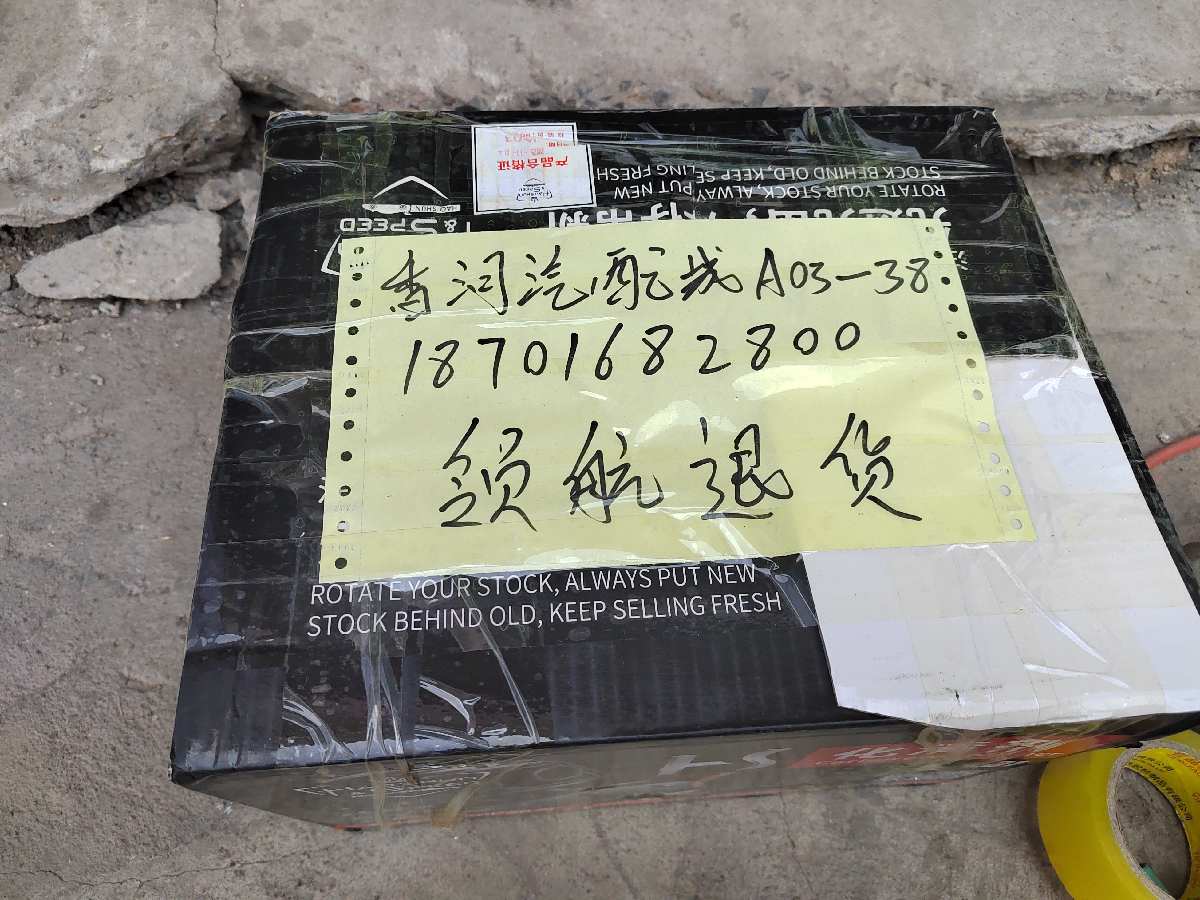 产品合格证
ROTATE YOUR STOCK, ALWAY PUT NEW
STOCK BEHIND OLD, KEEP SELING FRESH
& SPEED
香河汽配城A03-38
18701682800
领航退货
ROTATE YOUR STOCK, ALWAYS PUT NEW
STOCK BEHIND OLD, KEEP SELLING FRESH